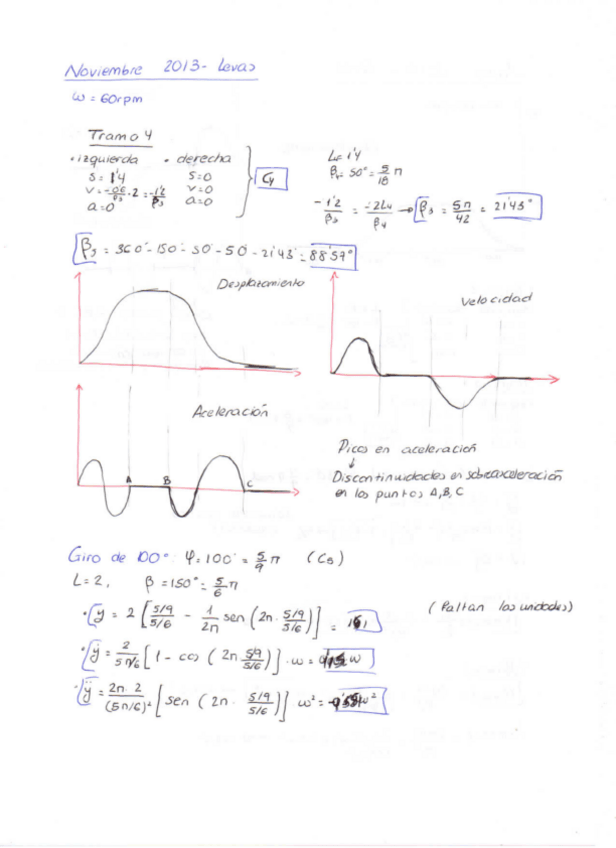 Noviembre 2013 - Levas
ω = 60rpm
Tramo 4
• izquierda • derecha
s = 1'4 s=0
v = -0'6/β3 · 2 = -1'2/β3 v=0
a=0 a=0
C4
L= 1'4
β4= 50° = 5/18 π
-1'2/β3 = -2L4/β4 → β3 = 5π/42 = 21'43°
= 360° - 150° - 50° - 50° - 21'43° = 88'57°
Desplazamiento
Velocidad
Aceleración
A B C
Picos en aceleración
↓
Discontinuidades en sobreaceleración
en los puntos A, B, C
Giro de 100°: φ=100° = 5/9 π (C5)
L=2, β=150° = 5/6 π
• y = 2 [ 5/9 / 5/6 - 1/2π sen (2π · 5/9 / 5/6) ] =
(Faltan las unidades)
• ẏ = 2 / 5π/6 [ 1 - cos ( 2π 5/9 / 5/6 ) ] · ω = ω
• ÿ = 2π · 2 / (5π/6)² [ sen ( 2π · 5/9 / 5/6 ) ] · ω² = ω²